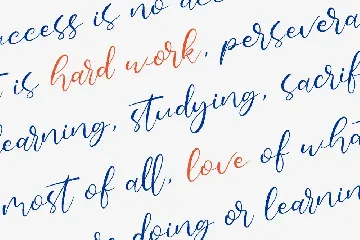 ccess is no acc
t is hard work, persevera
learning, studying, sacrif
most of all, love of wha
doing or learnin